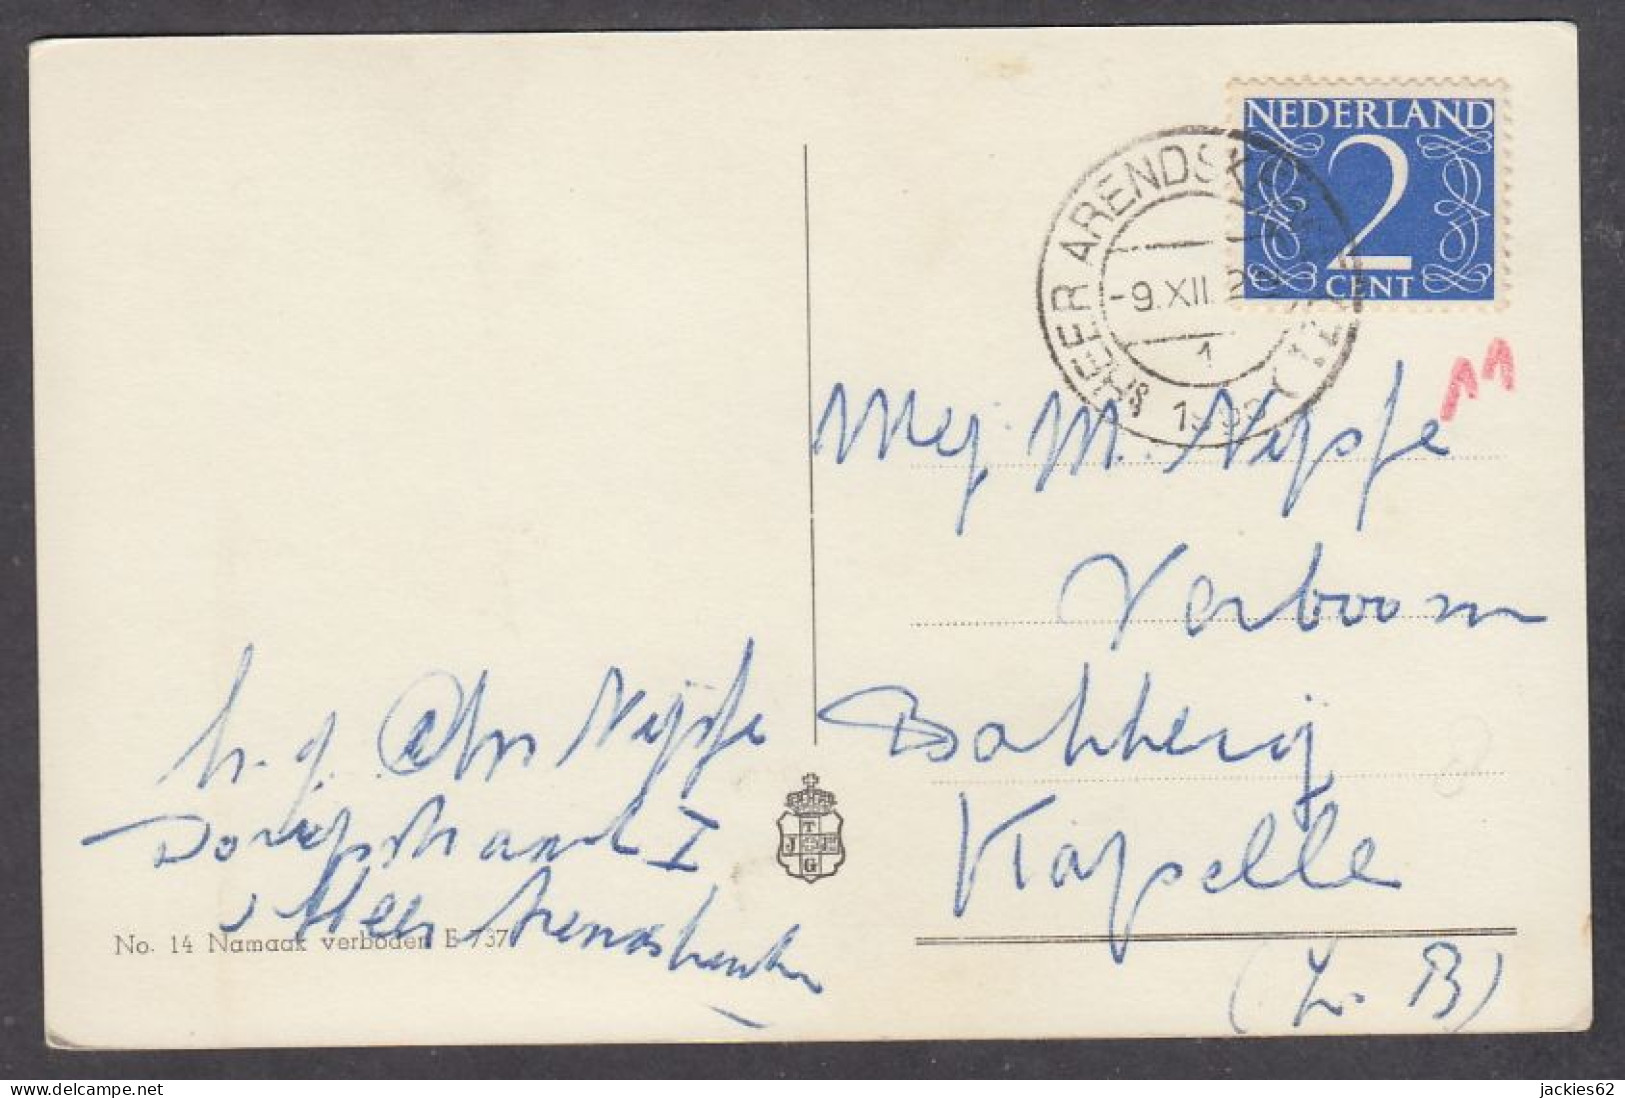 NEDERLAND
2
CENT
'S HEER ARENDSKERKE
-9.XII
1
Mej M. Nijsse
Verboom
Bakkerij
Kapelle
(Z. B)
Nijsse
Dorpsstraat I
s Heer Arendskerke
T
J E
G
No. 14 Namaak verboden E 737
delcampe.net
jackies62